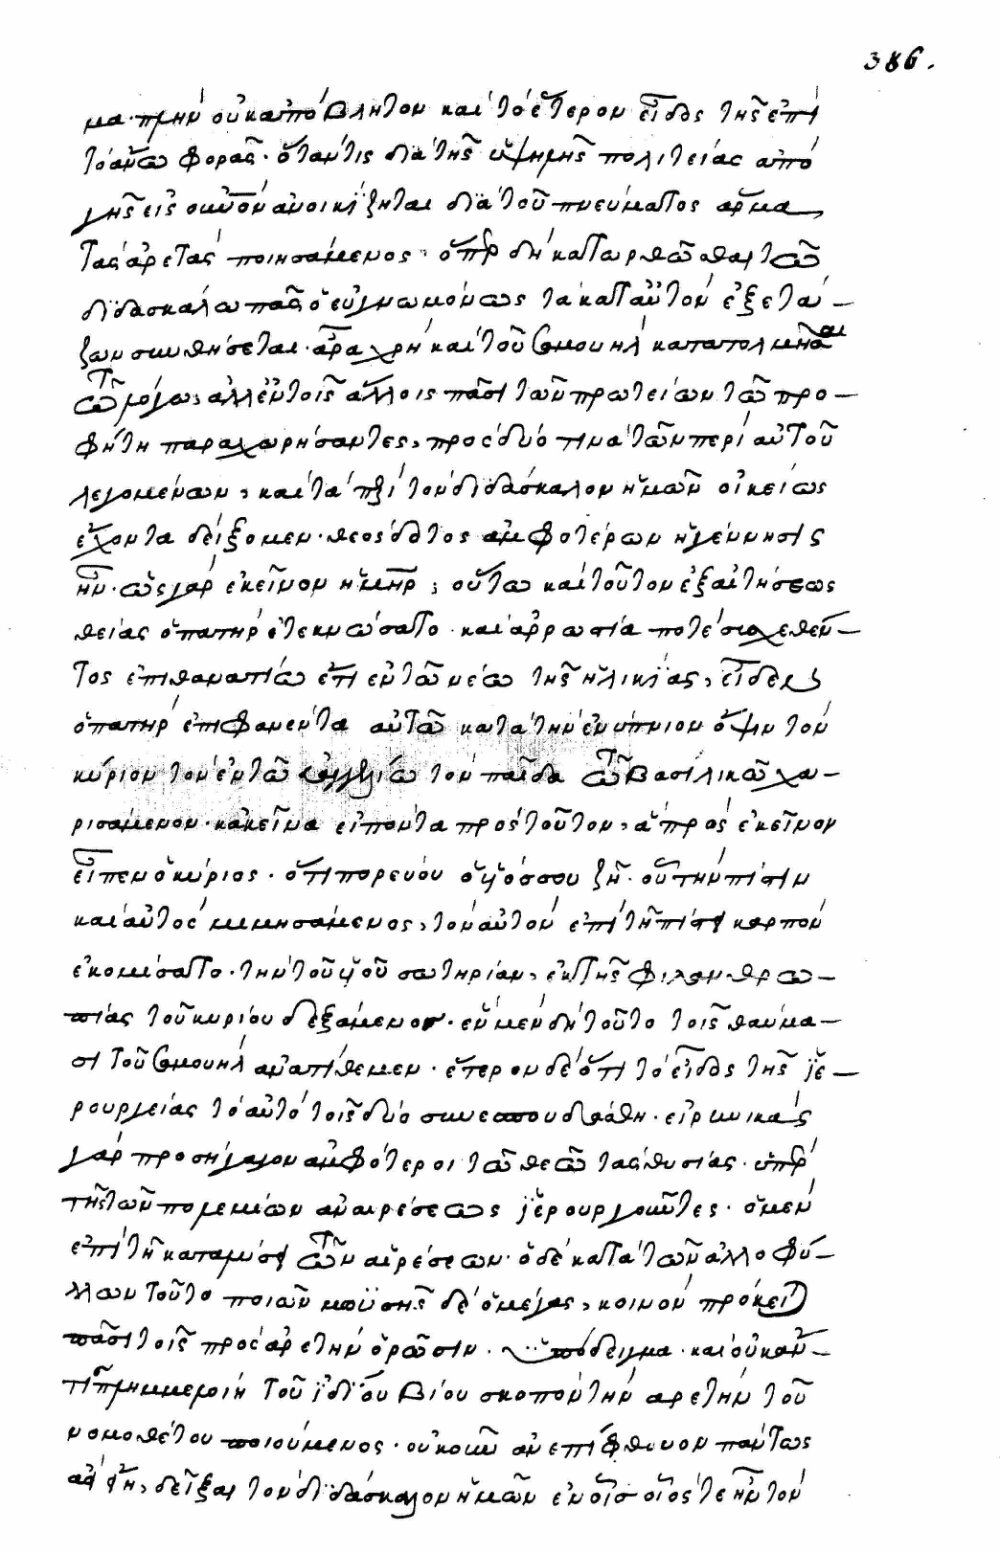 386.
μα πλὴν οὐκ ἀπόβλητον καὶ τὸ ἕτερον εἶδος τῆς ἐπὶ
τὸ ἄνω φορᾶς· ὅταν τις διὰ τῆς ὑψηλῆς πολιτείας ἀπὸ
γῆς εἰς οὐρανὸν ἀνοικίζηται διὰ τοῦ πνεύματος ἅρμα
τὰς ἀρετὰς ποιησάμενος· ὅπερ δὴ κατωρθῶσθαι τῶ
διδασκάλω πᾶς ὁ εὐγνωμόνως τὰ κατ' αὐτὸν ἐξετά–
ζων συνθήσεται· ἆρα χρὴ καὶ τοῦ σαμουὴλ κατατολμῆσαι
τῶ λόγω, ἀλλ' ἐν τοῖς ἄλλοις πᾶσι τῶν πρωτείων τῶ προ–
φήτη παραχωρήσαντες, πρὸς δύο τινὰ τῶν περὶ αὐτοῦ
λεγομένων, καὶ τὰ περὶ τὸν διδάσκαλον ἡμῶν οἰκείως
ἔχοντα δείξομεν· θεόσδοτος ἀμφοτέρων ἡ γέννησις
ἦν· ὡς γὰρ ἐκεῖνον ἡ μήτηρ, οὕτω καὶ τοῦτον ἐξ αἰτήσεως
θείας ὁ πατὴρ ἐτεκνώσατο· καὶ ἀρρωστία ποτὲ συσχεθέν–
τος ἐπιθανατίω ἔτι ἐν τῶ νέω τῆς ἡλικίας, εἶδεν
ὁ πατὴρ ἐπιφανέντα αὐτῶ κατὰ τὴν ἐνύπνιον ὄψιν τὸν
κύριον τὸν ἐν τῶ εὐαγγελίω τὸν παῖδα τῶ βασιλικῶ χα–
ρισάμενον· κἀκεῖνα εἰπόντα πρὸς τοῦτον, ἃ πρὸς ἐκεῖνον
εἶπεν ὁ κύριος· ὅτι πορεύου ὁ υἱός σου ζῆ· οὗ τὴν πίστιν
καὶ αὐτὸς μιμησάμενος, τὸν αὐτὸν ἐπὶ τῆ πίστει καρπὸν
ἐκομίσατο· τὴν τοῦ υἱοῦ σωτηρίαν, ἐκ τῆς φιλανθρω–
πίας τοῦ κυρίου δεξάμενος· ἓν μὲν δὴ τοῦτο τοῖς θαύμα–
σι τοῦ σαμουὴλ ἀνατίθεμεν· ἕτερον δὲ ὅτι τὸ εἶδος τῆς ἱε–
ρουργείας τὸ αὐτὸ τοῖς δύο συνεσπουδάσθη· εἰρηνικὰς
γὰρ προσήγαγον ἀμφότεροι τῶ θεῶ τὰς θυσίας· ὑπὲρ
τῆς τῶν πολεμίων ἀναιρέσεως ἱερουργοῦντες· ὁ μὲν
ἐπὶ τῆ καταλύσει τῶν αἱρέσεων· ὁ δὲ κατὰ τῶν ἀλλοφύ–
λλων τοῦτο ποιῶν μωϋσῆς δὲ ὁ μέγας, κοινὸν πρόκειται
πᾶσι τοῖς πρὸς ἀρετὴν ὁρῶσιν ὑπόδειγμα· καὶ οὐκ ἄν
τις πλημμελοίη τοῦ ἰδίου βίου σκοπὸν τὴν ἀρετὴν τοῦ
νομοθέτου ποιούμενος· οὐκοῦν ἀνεπίφθονον πάντως
ἂν εἴη, δεῖξαι τὸν διδάσκαλον ἡμῶν ἐν οἷς οἷός τε ἦν τὸν